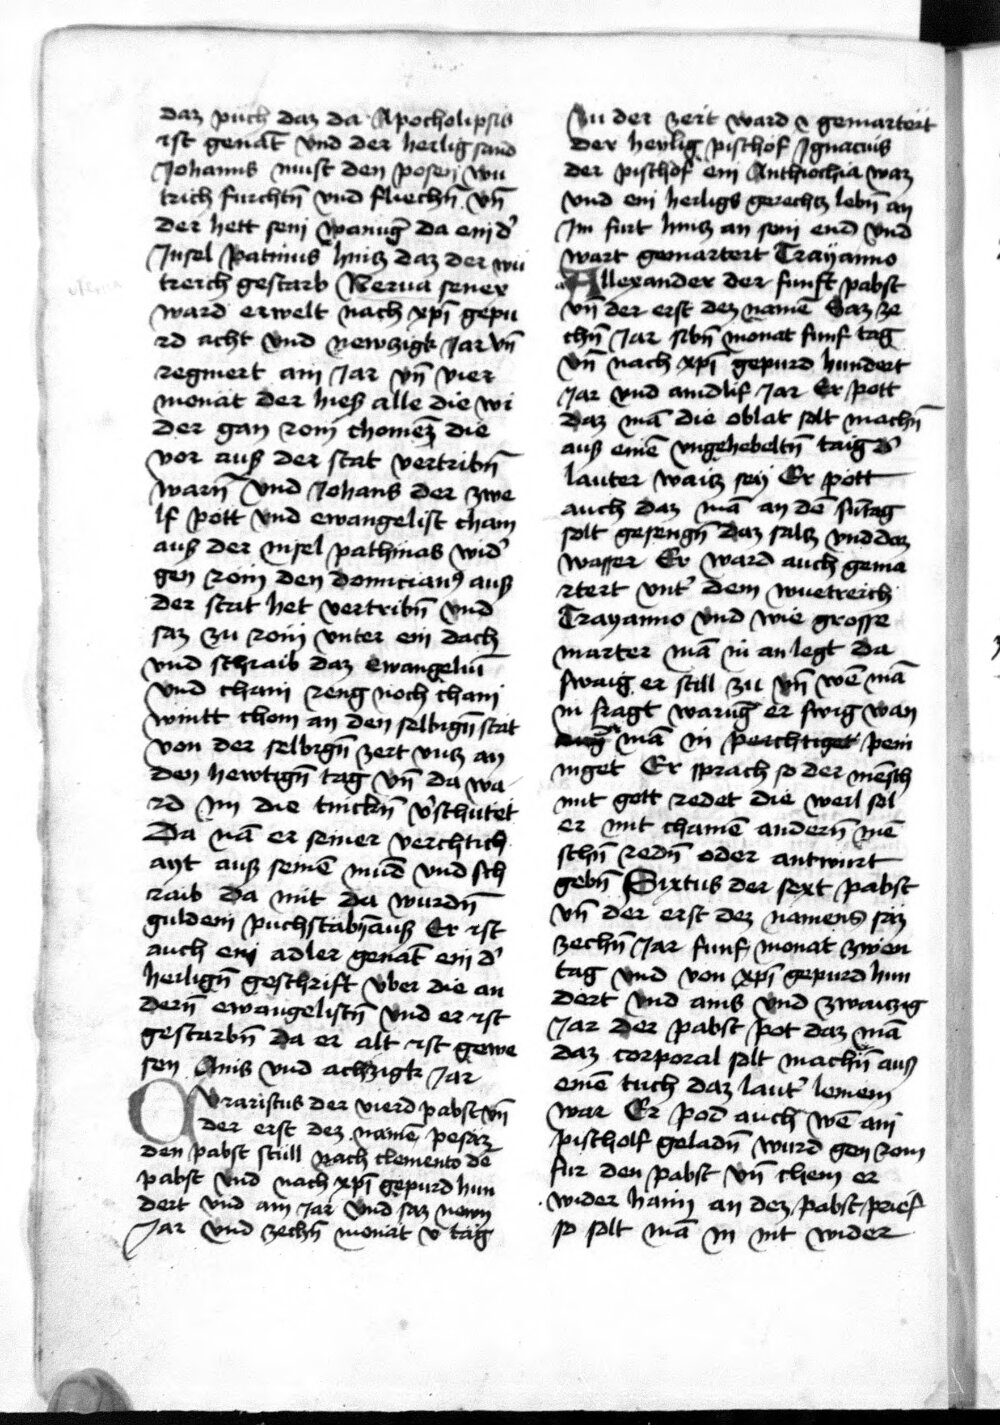 daz puch daz da Apocholipsis
ist genāt vnd der heilig sand
Johanns must den posen wu
trich furchtn̄ vnd fliechn̄ vn̄
der hett sein wanuḡ da ein d'
Jnsel patmus huisz daz der wu
treich gestarb Nerua senex
ward erwelt nach xpī gepu
rd acht vnd newzigk Jar vn̄
regniert ain Jar vn̄ vier
monat der hiesz alle die wi
der gan rom chomen̄ die
vor ausz der stat vertribn̄
warn̄ vnd Johans der zwe
lf pott vnd ewangelist cham
ausz der insel pathmas wid'
gen rom den domicianus ausz
der stat het vertribn̄ vnd
saz zu rom vnter ein dach
vnd schraib daz ewangeliū
vnd cham reng noch cham
wintt chom an den selbign̄ stat
von der selbign̄ zeit vnsz an
den hewtign̄ tag vn̄ da wa
rd im die tnickn̄ v'schutet
Da nā er seiner verchtich
ayt ausz seinē mūd vnd sch
raib da mit da wurdn̄
guldein puchstabn̄ ausz Er ist
auch ein adler genāt ein d'
heilign̄ geschrift vber die an
dern̄ ewangelistn̄ vnd er ist
gestarbn̄ da er alt ist gewe
sen Ains vnd achzigk Jar
Vraristus der vierd pabst vn̄
der erst dez namē pesaz
den pabst stúll nach clemento dē
pabst vnd nach xpī gepurd hun
dert vnd ain Jar vnd saz newn
Jar vnd zechn̄ monat v tag
Zu der zeit ward gemartert
der heylig pischof Jgnacius
der pischof ein Anthiochia waz
vnd ein heiligs gerechtz lebn̄ an
Jm furt huisz an sein end vnd
wart gemartert Trayanno
Allexander der funft pabst
vn̄ der erst dez namē Saz ze
chn̄ Jar sibn̄ monat funf tag
vn̄ nach xpī gepurd hundert
Jar vnd aindlif Jar Er pott
daz mā die oblat solt machn̄
ausz einē vngehebeltn̄ taig d'
lauter waisz sey Er pott
auch daz mā an dē sūtag
solt gesengn̄ daz salz vnd daz
wasser Er ward auch gema
rtert vnt' dem wuetreich
Trayanno vnd wie grosse
marter mā in an legt da
swaig er still zu vn̄ wē mā
in fragt warūg er swig wan
mā in perchtiget pein
niget Er sprach so der mēsch
mit gott redet die weil sol
er mit chainē andern̄ mē
schn̄ redn̄ oder antwurt
gebn̄ Sixtus der sext pabst
vn̄ der erst dez namens saz
zechn̄ Jar funf monat zwen
tag vnd von xpī gepurd hun
dert vnd ains vnd zwaizig
Jar der pabst pot daz mā
daz corporal solt machn̄ ausz
einē tuch daz laut' leinein
war Er pod auch wē ain
pischolf geladn̄ wurd gen rom
fur den pabst vn̄ chem er
wider haim an dez pabst prief
so solt mā in nit wider